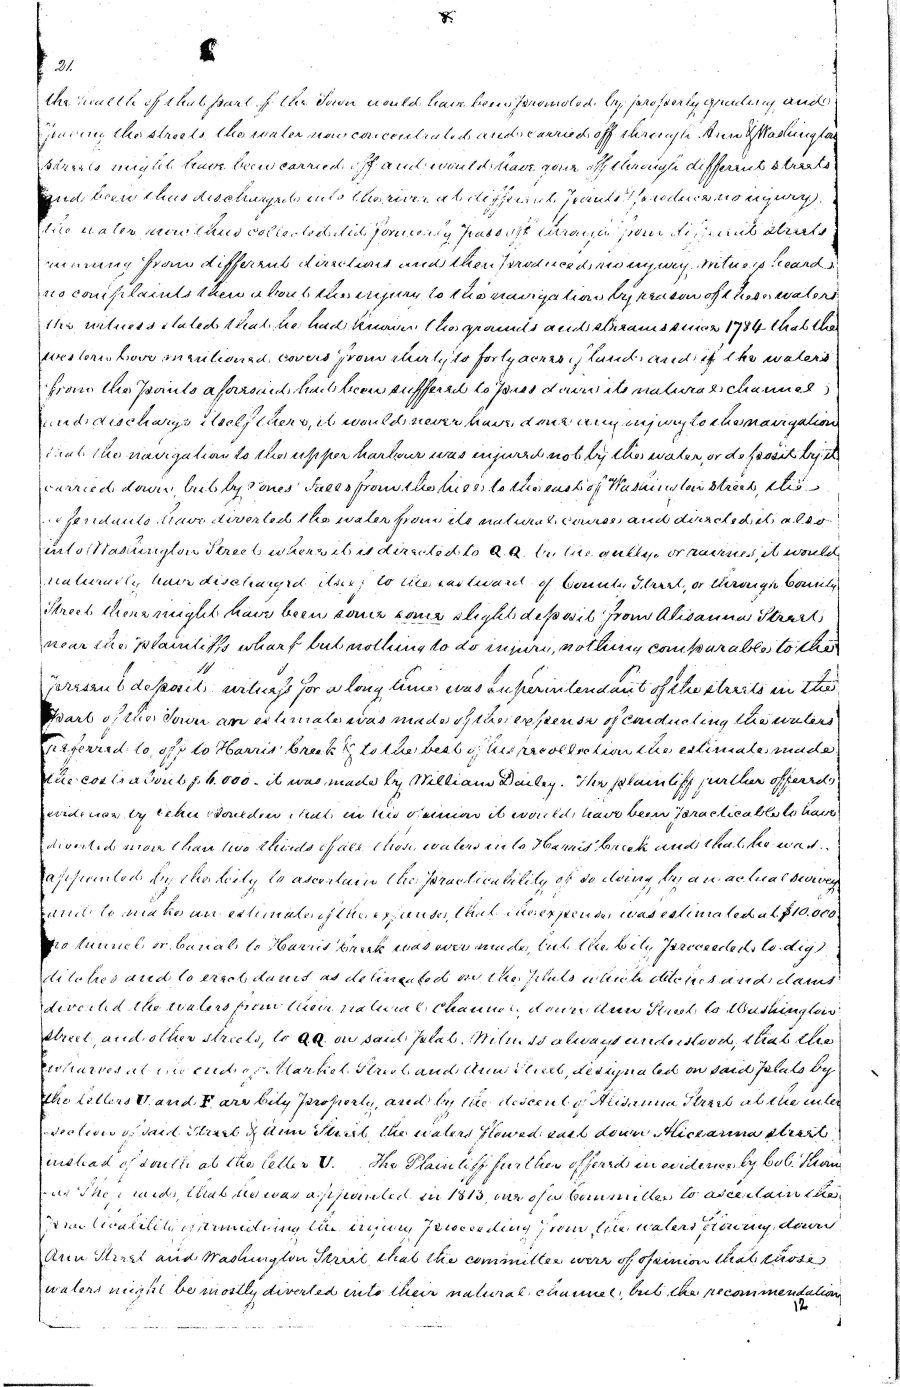 8.
21.
the health of that part of the Town would have been promoted by properly grading and
paving the streets, the water now concentrated and carried off through Ann & Washington
streets might have been carried off and would have gone off through different streets
and been thus discharged into the river at different points & produce no injury.
the water now thus collected did formerly pass off through from different streets
running from different directions and then produced no injury, witness heard
no complaints then about the injury to the navigation by reason of these waters
the witness stated that he had known the grounds and streams since 1784 that the
western cove mentioned, covers from thirty to forty acres of land and if the waters
from the points aforesaid had been sufffered to pass down its natural channel
and discharge itself there, it would never have done any injury to the navigation
that the navigation to the upper harbour was injured not by the water, or deposit by it
carried down, but by Jones' Falls from the hills to the east of Washington Street, the
defendants have diverted the water from its natural course and directed it also
into Washington Street where it is directed to Q Q. by the gullys or ravines, it would
naturally have discharged itself to the eastward of County Street, or through County
Street there might have been some some slight deposit from Alisanna Street
near the plaintiffs wharf but nothing to do injury, nothing comparable to the
present deposit. witness for a long time was superintendant of the streets in the
part of the Town an estimate was made of the expense of conducting the waters
referred to, off to Harris' Creek & to the best of his recollection the estimate made
the costs about $6.000 - it was made by William Dailey. The plaintiff further offered
evidence by John Boulden that in his opinion it would have been practicable to have
diverted more than two thirds of all those waters into Harris' Creek and that he was
appointed by the City to ascertain the practicability of so doing by an actual survey
and to make an estimate of the expenses, that the expense was estimated at $10.000
no tunnel or Canal to Harris' Creek was ever made, but the City proceeded to dig
ditches and to erect dams as delineated on the plats which ditches and dams
diverted the waters from their natural channel, down Ann Street to Washington
street, and other streets, to QQ on said plat. Witness always understood, that the
wharves at the end of Market Street and Ann Street, designated on said plats by
the letters U. and F are City property, and by the descent of Alisanna Street at the inter
-section of said Street & Ann Street, the waters flowed east down Aliceanna street
instead of south at the letter U. The Plaintiff further offered in evidence by Col. Thom
-as that he was appointed in 1813, one of a Committee to ascertain the
practicability of remidying the injury proceeding from the waters flowing down
Ann Street and Washington Street, that the committee were of opinion that those
waters might be mostly diverted into their natural channel, but the recommendation
12